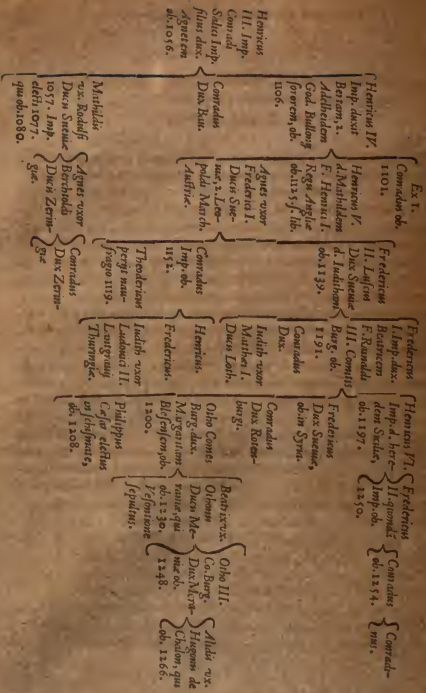 Henricus
III. Imp.
Conradi
Salici Imp.
filius dux.
Agnetem
ob. 1056.
Henricus IV.
Imp. duxit
Bertam, 2.
Adelheidem
God. Bullong
sororem, ob.
1106.
Conradus
Dux Bau.
Mathildis
vx. Rudolfi
Ducis Sueuiæ
1057. Imp.
electi 1077.
qui ob. 1080.
Ex 1.
Conradus ob.
1101.
Henricus V.
d. Mathildem
F. Henrici I.
Regis Angliæ
ob. 1125. s. lib.
Agnes vxor
Frederici I.
Ducis Sue-
uiæ, 2. Leo-
poldi March.
Austriæ.
Agnes vxor
Berchtoldi
Ducis Zerin-
giæ.
Fredericus
II. Luscus
Dux Sueuiæ
d. Iuditham
ob. 1139.
Conradus
Imp. ob.
1152.
Conradus
Dux Zerin-
giæ
Fredericus
I. Imp. dux.
Beatricem
F. Renaldi
III. Comitis
Burg. ob.
1191.
Conradus
Dux.
Iudith vxor
Matthei I.
Ducis Loth.
Henricus.
Fredericus.
Theodericus
pergs nau-
fragio 1119.
Iudith vxor
Ludouici II.
Lantgrauij
Thuringiæ.
Henricus VI.
Imp. d. here-
dem Siciliæ,
ob. 1197.
Fredericus
Dux Sueuiæ,
ob. in Syria.
Conradus
Dux Roten-
burgi.
Otho Comes
Burg. dux.
Margaritam
Blesensem, ob.
1200.
Philippus
Cæsar electus
in schismate,
ob. 1208.
Fredericus
II. quondā
Imp. ob.
1250.
Beatrix vx.
Othonis
Ducis Me-
raniæ, qui
ob. 1230,
Vesontione
sepultus.
Conradus
ob. 1254.
Otho III.
Co. Burg.
Dux Mera-
niæ ob.
1248.
Conradi-
nus.
Alidis vx.
Hugonis de
Chalon, qui
ob. 1266.